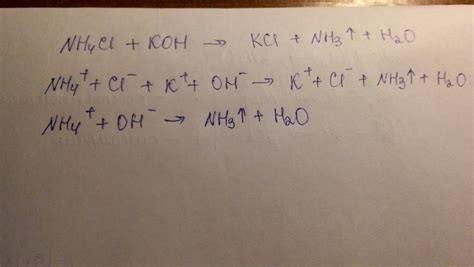 NH4Cl + KOH → KCl + NH3↑ + H2O
NH4⁺ + Cl⁻ + K⁺ + OH⁻ → K⁺ + Cl⁻ + NH3↑ + H2O
NH4⁺ + OH⁻ → NH3↑ + H2O